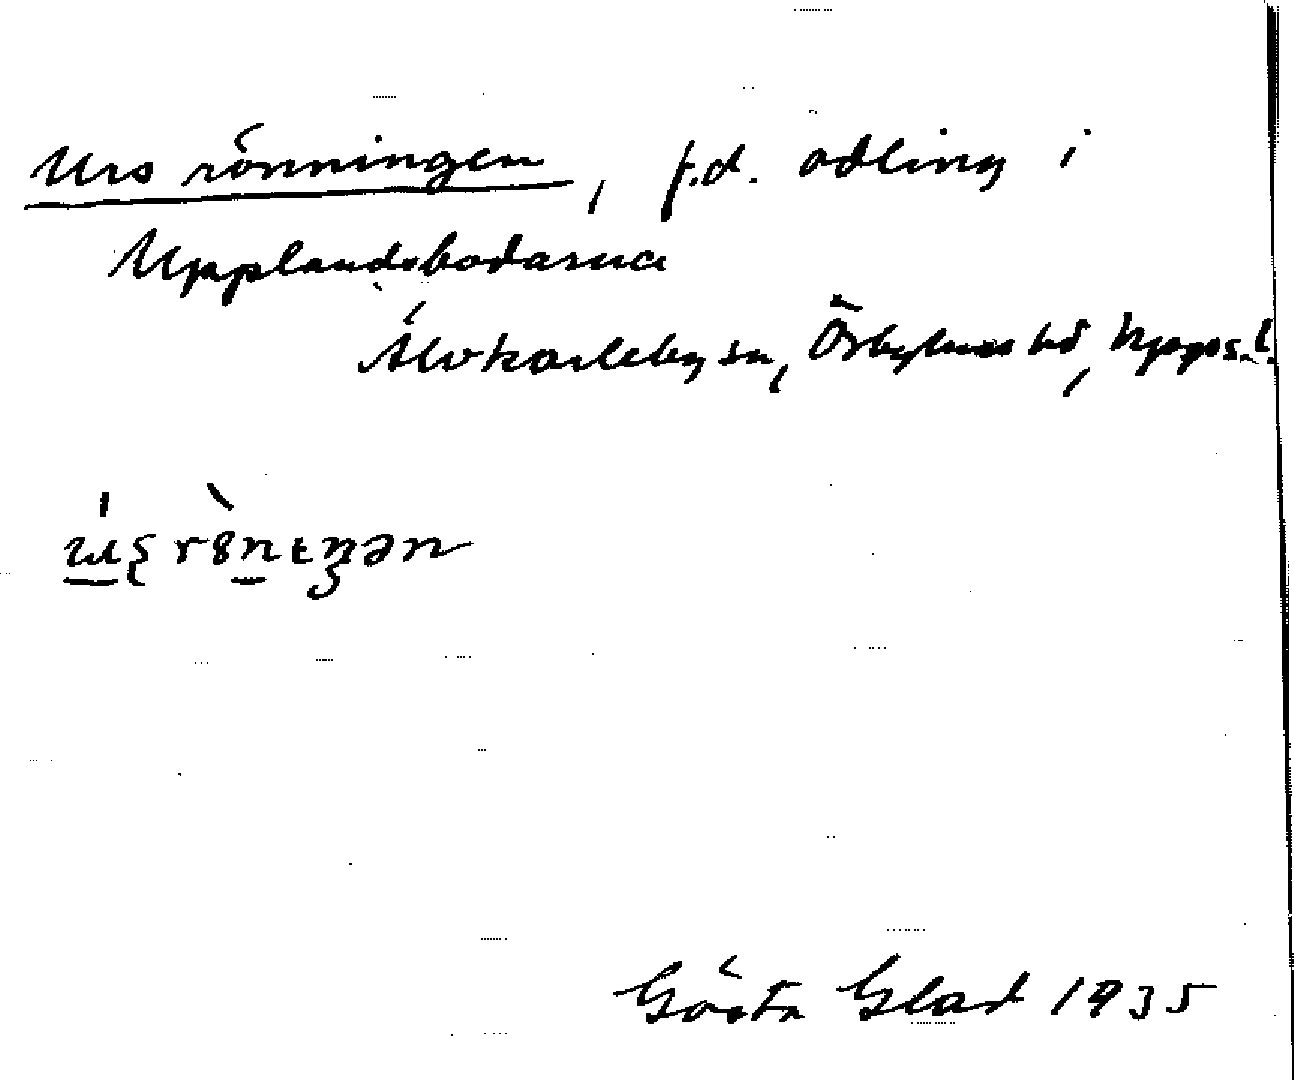 Urs rönningen, f.d. odling i
Upplandsbodarna
Älvkarleby sn, Örbyhus hd, Upps. l.
Gösta Glad 1935